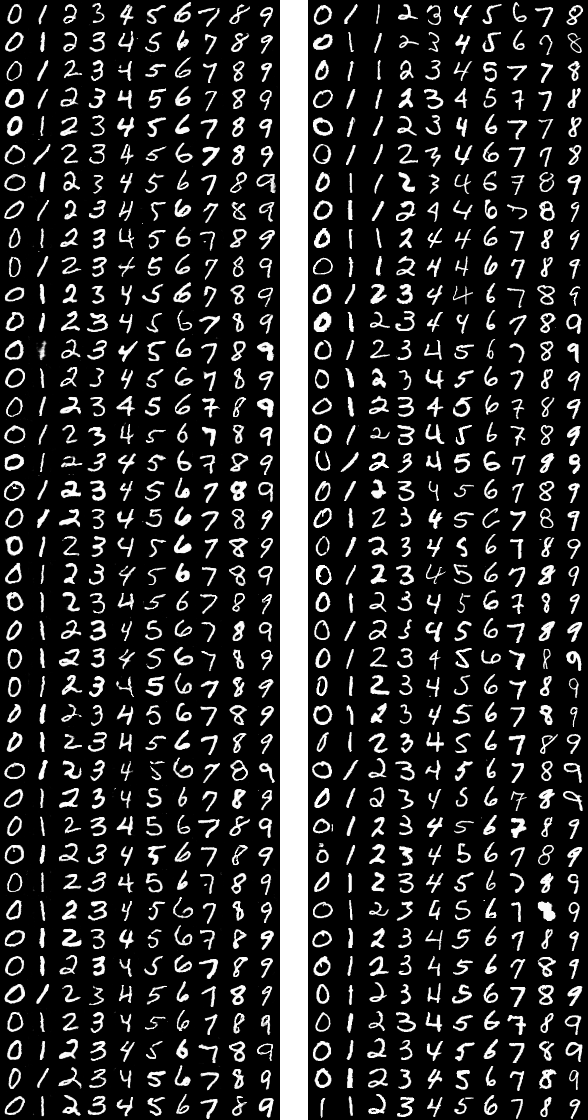 0 1 2 3 4 5 6 7 8 9
0 1 2 3 4 5 6 7 8 9
0 1 2 3 4 5 6 7 8 9
0 1 2 3 4 5 6 7 8 9
0 1 2 3 4 5 6 7 8 9
0 1 2 3 4 5 6 7 8 9
0 1 2 3 4 5 6 7 8 9
0 1 2 3 4 5 6 7 8 9
0 1 2 3 4 5 6 7 8 9
0 1 2 3 4 5 6 7 8 9
0 1 2 3 4 5 6 7 8 9
0 1 2 3 4 5 6 7 8 9
0 1 2 3 4 5 6 7 8 9
0 1 2 3 4 5 6 7 8 9
0 1 2 3 4 5 6 7 8 9
0 1 2 3 4 5 6 7 8 9
0 1 2 3 4 5 6 7 8 9
0 1 2 3 4 5 6 7 8 9
0 1 2 3 4 5 6 7 8 9
0 1 2 3 4 5 6 7 8 9
0 1 2 3 4 5 6 7 8 9
0 1 2 3 4 5 6 7 8 9
0 1 2 3 4 5 6 7 8 9
0 1 2 3 4 5 6 7 8 9
0 1 2 3 4 5 6 7 8 9
0 1 2 3 4 5 6 7 8 9
0 1 2 3 4 5 6 7 8 9
0 1 2 3 4 5 6 7 8 9
0 1 2 3 4 5 6 7 8 9
0 1 2 3 4 5 6 7 8 9
0 1 2 3 4 5 6 7 8 9
0 1 2 3 4 5 6 7 8 9
0 1 2 3 4 5 6 7 8 9
0 1 2 3 4 5 6 7 8 9
0 1 2 3 4 5 6 7 8 9
0 1 2 3 4 5 6 7 8 9
0 1 2 3 4 5 6 7 8 9
0 1 2 3 4 5 6 7 8 9
0 1 2 3 4 5 6 7 8 9
0 1 2 3 4 5 6 7 8 9
0 1 1 2 3 4 5 6 7 8
0 1 1 2 3 4 5 6 7 8
0 1 1 2 3 4 5 7 7 8
0 1 1 2 3 4 5 7 7 8
0 1 1 2 3 4 6 7 7 8
0 1 1 2 3 4 6 7 7 8
0 1 1 2 3 4 6 7 8 9
0 1 1 2 4 4 6 7 8 9
0 1 1 2 4 4 6 7 8 9
0 1 1 2 4 4 6 7 8 9
0 1 2 3 4 4 6 7 8 9
0 1 2 3 4 4 6 7 8 9
0 1 2 3 4 5 6 7 8 9
0 1 2 3 4 5 6 7 8 9
0 1 2 3 4 5 6 7 8 9
0 1 2 3 4 5 6 7 8 9
0 1 2 3 4 5 6 7 8 9
0 1 2 3 4 5 6 7 8 9
0 1 2 3 4 5 6 7 8 9
0 1 2 3 4 5 6 7 8 9
0 1 2 3 4 5 6 7 8 9
0 1 2 3 4 5 6 7 8 9
0 1 2 3 4 5 6 7 8 9
0 1 2 3 4 5 6 7 8 9
0 1 2 3 4 5 6 7 8 9
0 1 2 3 4 5 6 7 8 9
0 1 2 3 4 5 6 7 8 9
0 1 2 3 4 5 6 7 8 9
0 1 2 3 4 5 6 7 8 9
0 1 2 3 4 5 6 7 8 9
0 1 2 3 4 5 6 7 8 9
0 1 2 3 4 5 6 7 8 9
0 1 2 3 4 5 6 7 8 9
0 1 2 3 4 5 6 7 8 9
0 1 2 3 4 5 6 7 8 9
0 1 2 3 4 5 6 7 8 9
0 1 2 3 4 5 6 7 8 9
0 1 2 3 4 5 6 7 8 9
0 1 2 3 4 5 6 7 8 9
1 1 2 3 4 5 6 7 8 9